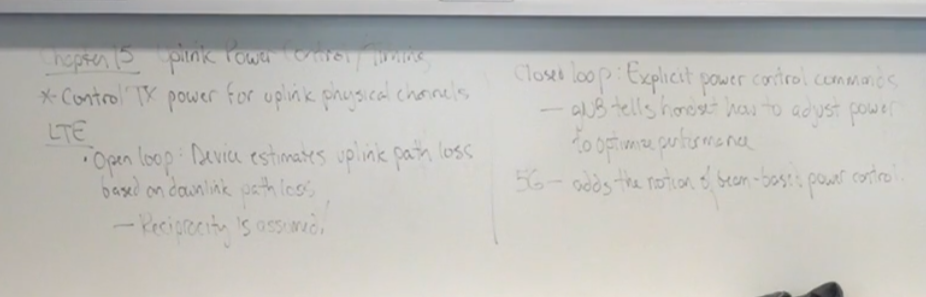 Chapter 15 Uplink Power Control/Timing
* Control TX power for uplink physical channels
LTE
• Open loop: Device estimates uplink path loss
based on downlink path loss
— Reciprocity is assumed!
Closed loop: Explicit power control commands
— gNB tells handset how to adjust power
to optimize performance
5G — adds the notion of beam-based power control.